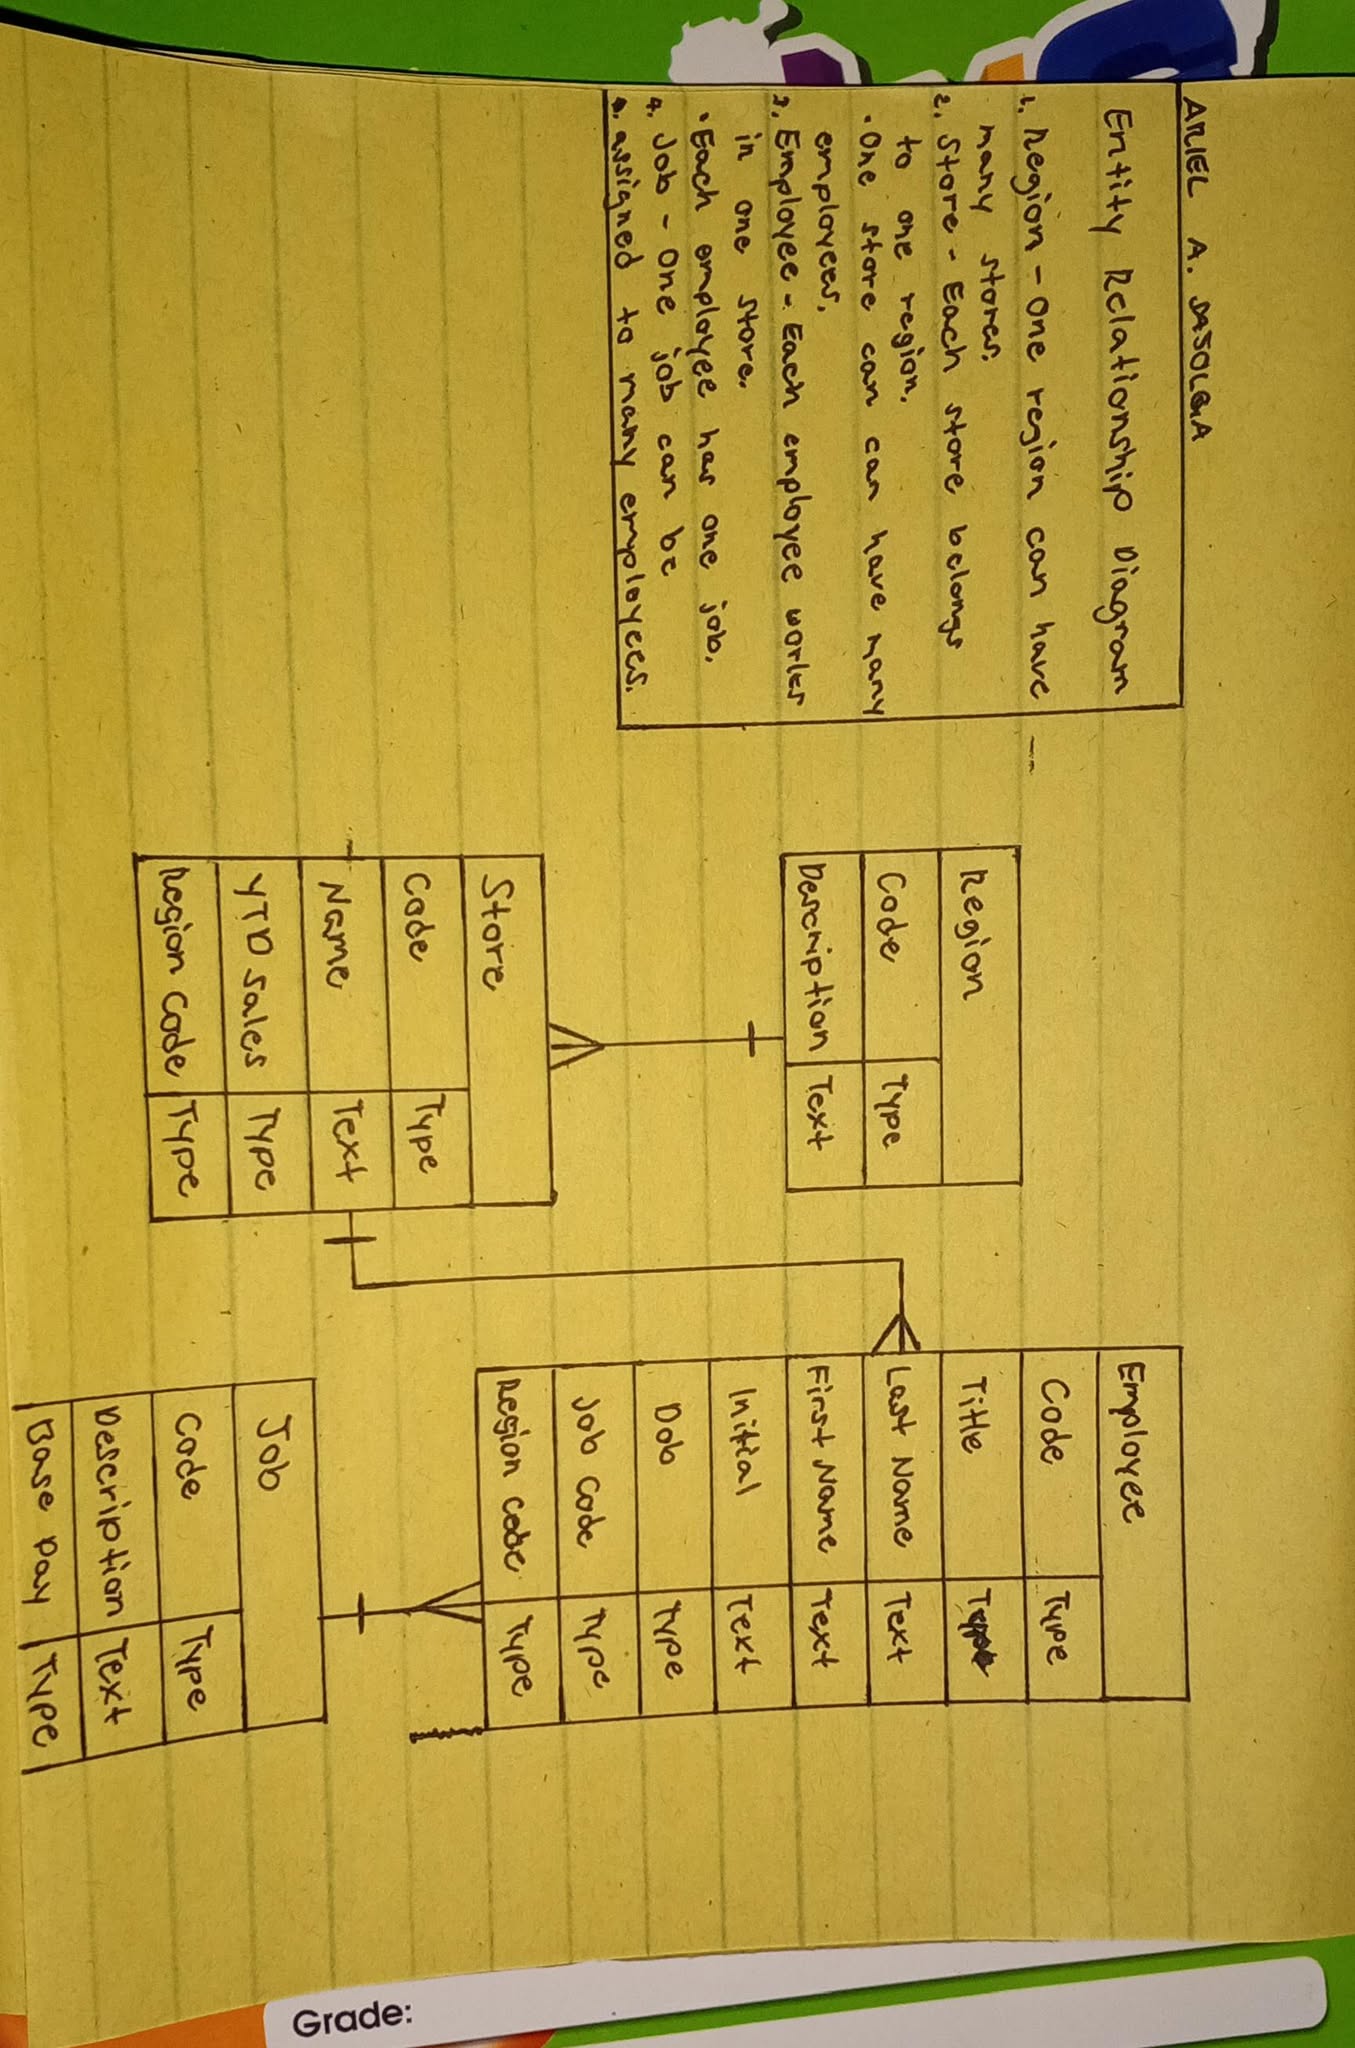 ARIEL A. DASOLGA
Entity Relationship Diagram
1. Region - One region can have
many stores.
2. Store - Each store belongs
to one region.
• One store can can have many
employees.
3. Employee - Each employee works
in one store.
• Each employee has one job.
4. Job - One job can be
assigned to many employees.
Region
Code Type
Description Text
Store
Code Type
Name Text
YTD Sales Type
Region Code Type
Employee
Code Type
Title
Last Name Text
First Name Text
Initial Text
Dob Type
Job Code Type
Region Code Type
Job
Code Type
Description Text
Base Pay Type
Grade: